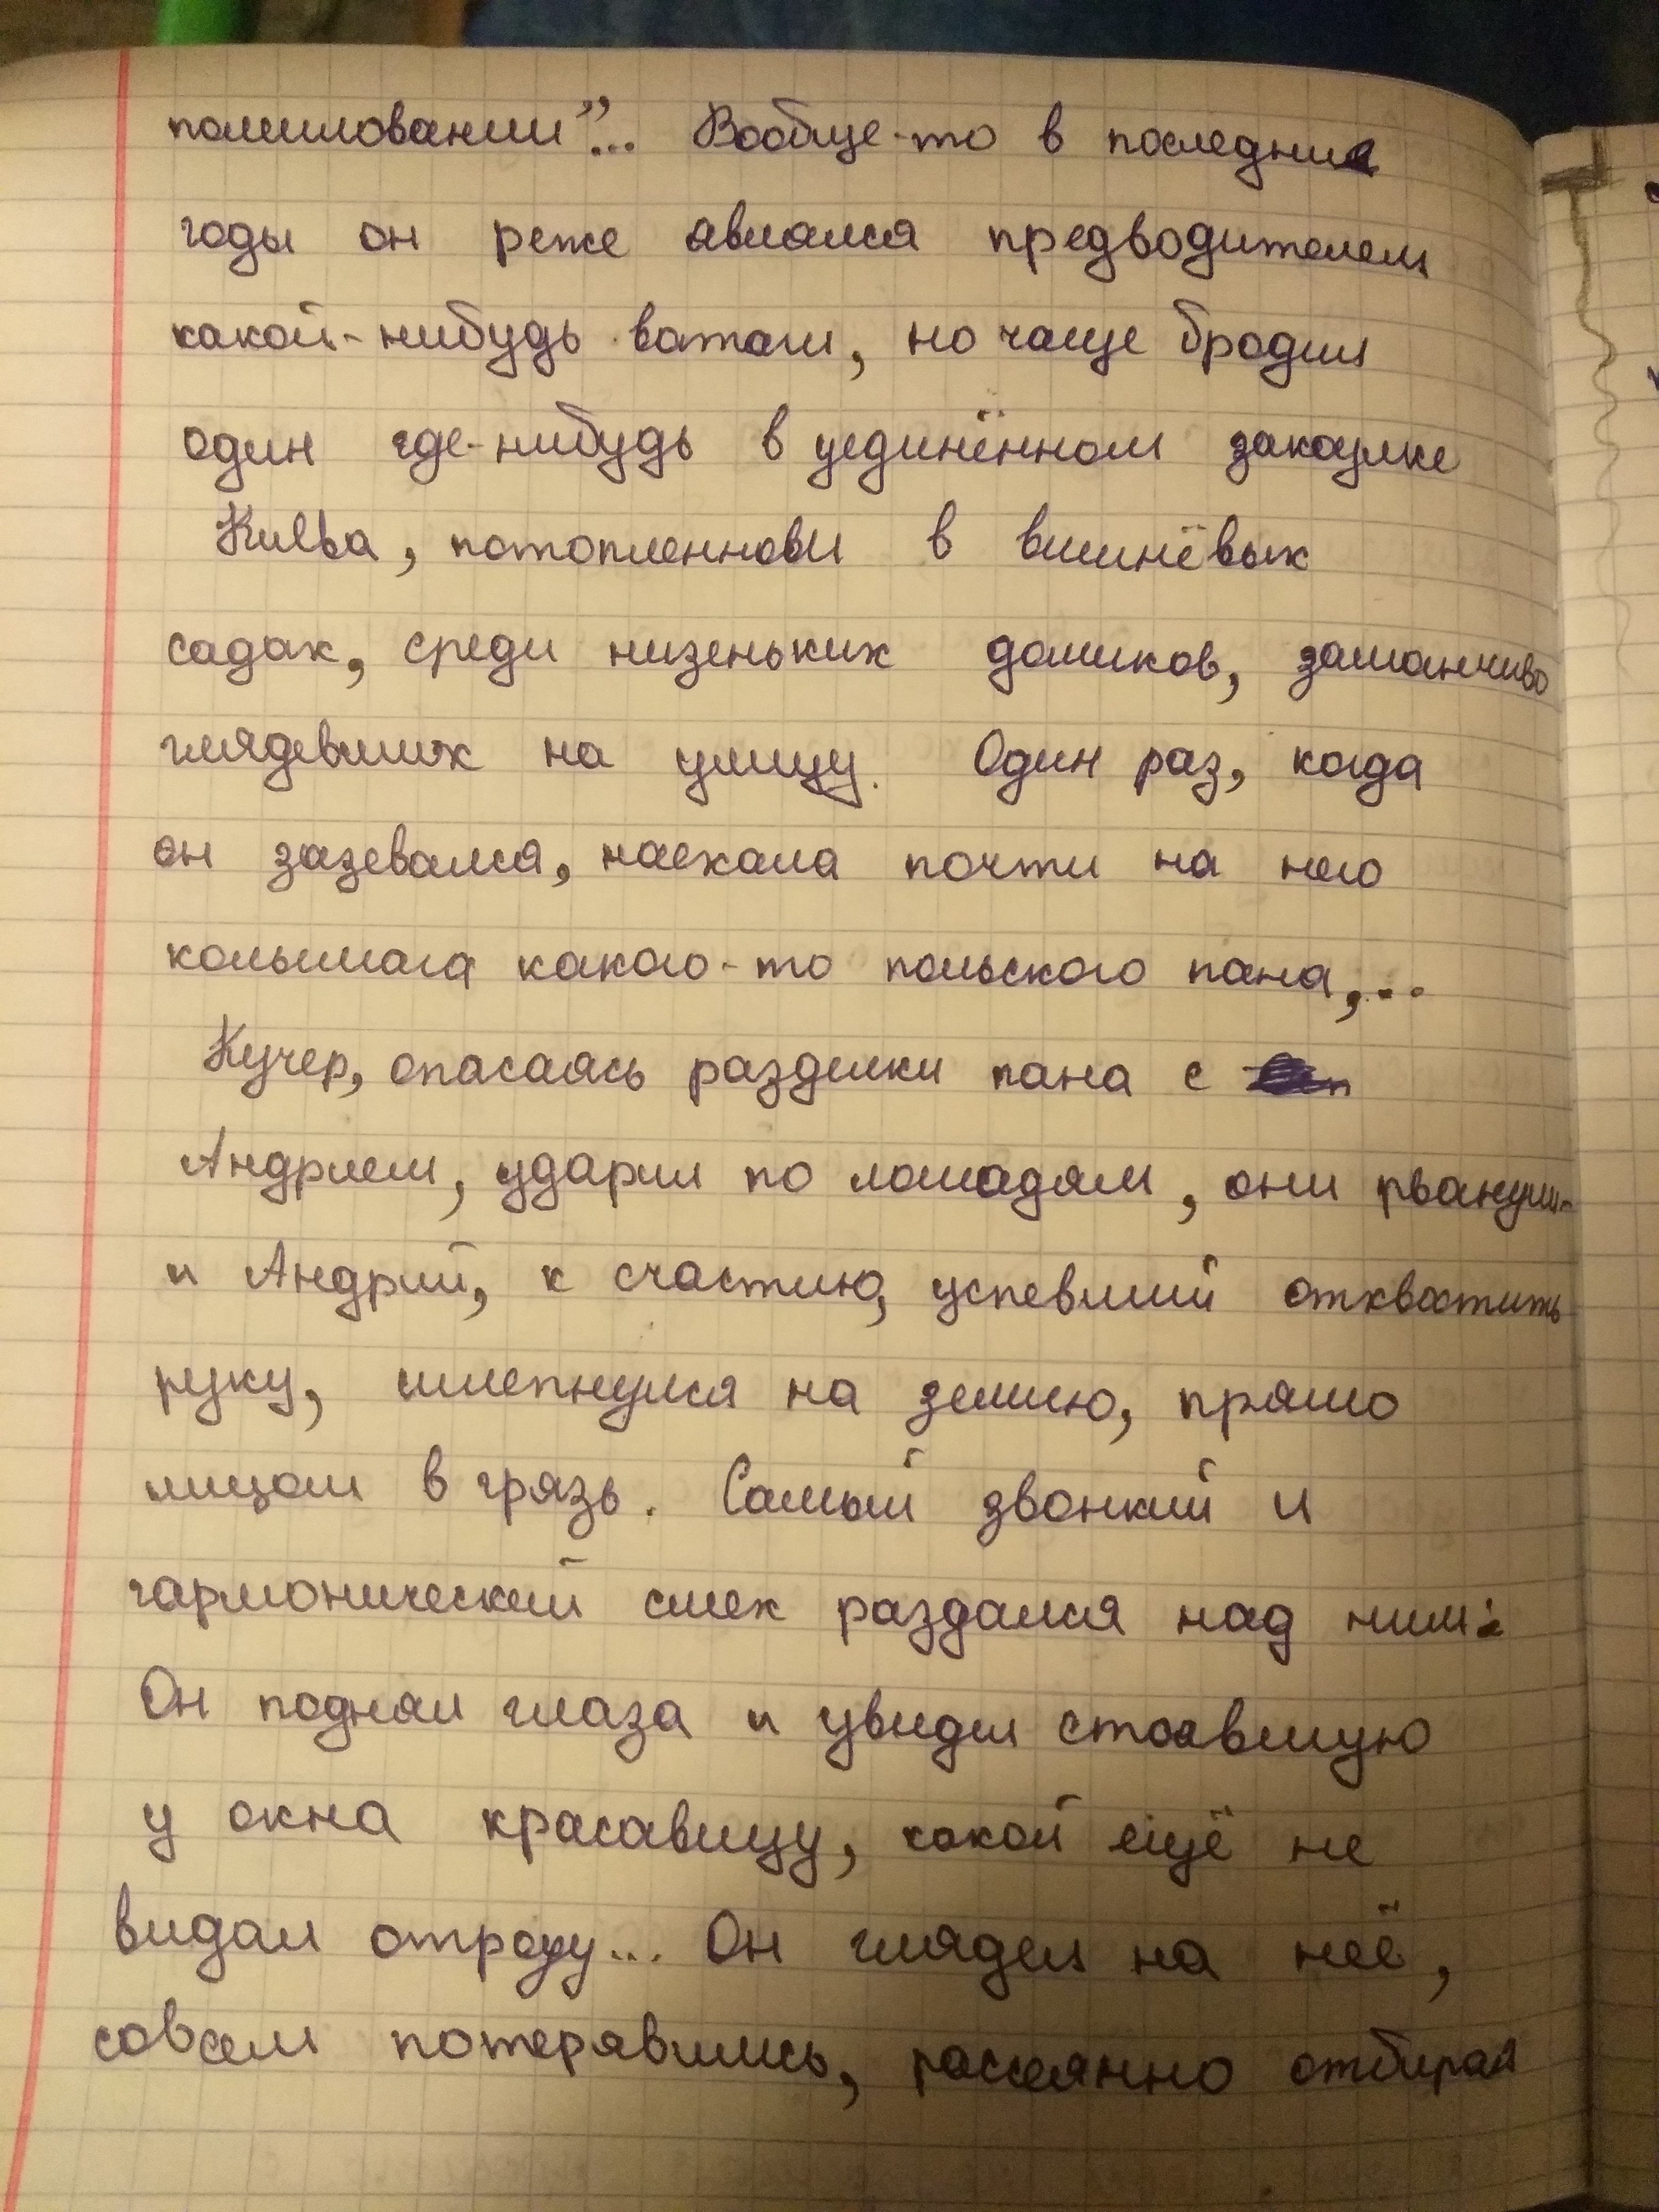 помиловании"... Вообще-то в последние
годы он реже являлся предводителем
какой-нибудь ватаги, но чаще бродил
один где-нибудь в уединённом закоулке
Киева, потопленном в вишнёвых
садах, среди низеньких домиков, заманчиво
глядевших на улицу. Один раз, когда
он зазевался, наехала почти на него
колымага какого-то польского пана,...
Кучер, опасаясь разделки пана с
Андрием, ударил по лошадям, они рванули-
и Андрий, к счастию, успевший отхватить
руку, шлепнулся на землю, прямо
лицом в грязь. Самый звонкий и
гармонический смех раздался над ним.
Он поднял глаза и увидел стоявшую
у окна красавицу, какой ещё не
видал отроду... Он глядел на неё,
совсем потерявшись, рассеянно отбирая